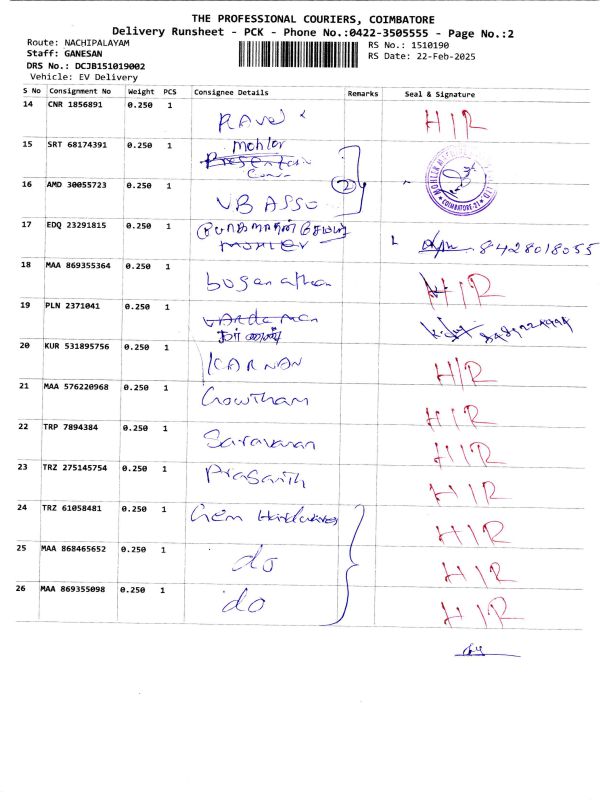 THE PROFESSIONAL COURIERS, COIMBATORE
Delivery Runsheet - PCK - Phone No.:0422-3505555 - Page No.:2
Route: NACHIPALAYAM
RS No.: 1510190
Staff: GANESAN
RS Date: 22-Feb-2025
DRS No.: DCJB151019002
Vehicle: EV Delivery
S No Consignment No Weight PCS Consignee Details Remarks Seal & Signature
14 CNR 1856891 0.250 1 H I R
15 SRT 68174391 0.250 1 Mohler
16 AMD 30055723 0.250 1 VB ASSO 2
COIMBATORE-21
17 EDQ 23291815 0.250 1 8428018055
18 MAA 869355364 0.250 1 boganathan H I R
19 PLN 2371041 0.250 1
20 KUR 531895756 0.250 1 KARNAN H I R
21 MAA 576220968 0.250 1 Gowtham H I R
22 TRP 7894384 0.250 1 Saravanan H I R
23 TRZ 275145754 0.250 1 Prasanth H I R
24 TRZ 61058481 0.250 1 Gem H I R
25 MAA 868465652 0.250 1 do H I R
26 MAA 869355098 0.250 1 do H I R